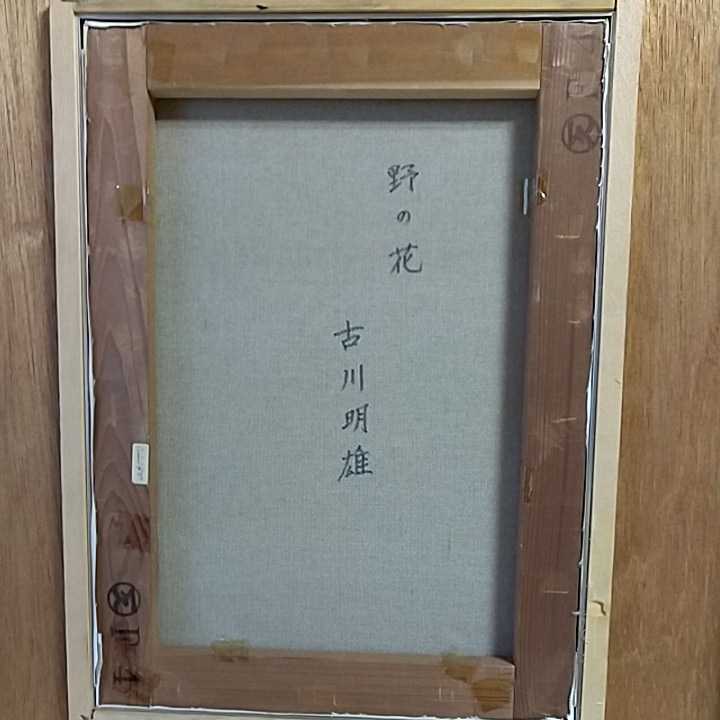 野の花
古川明雄